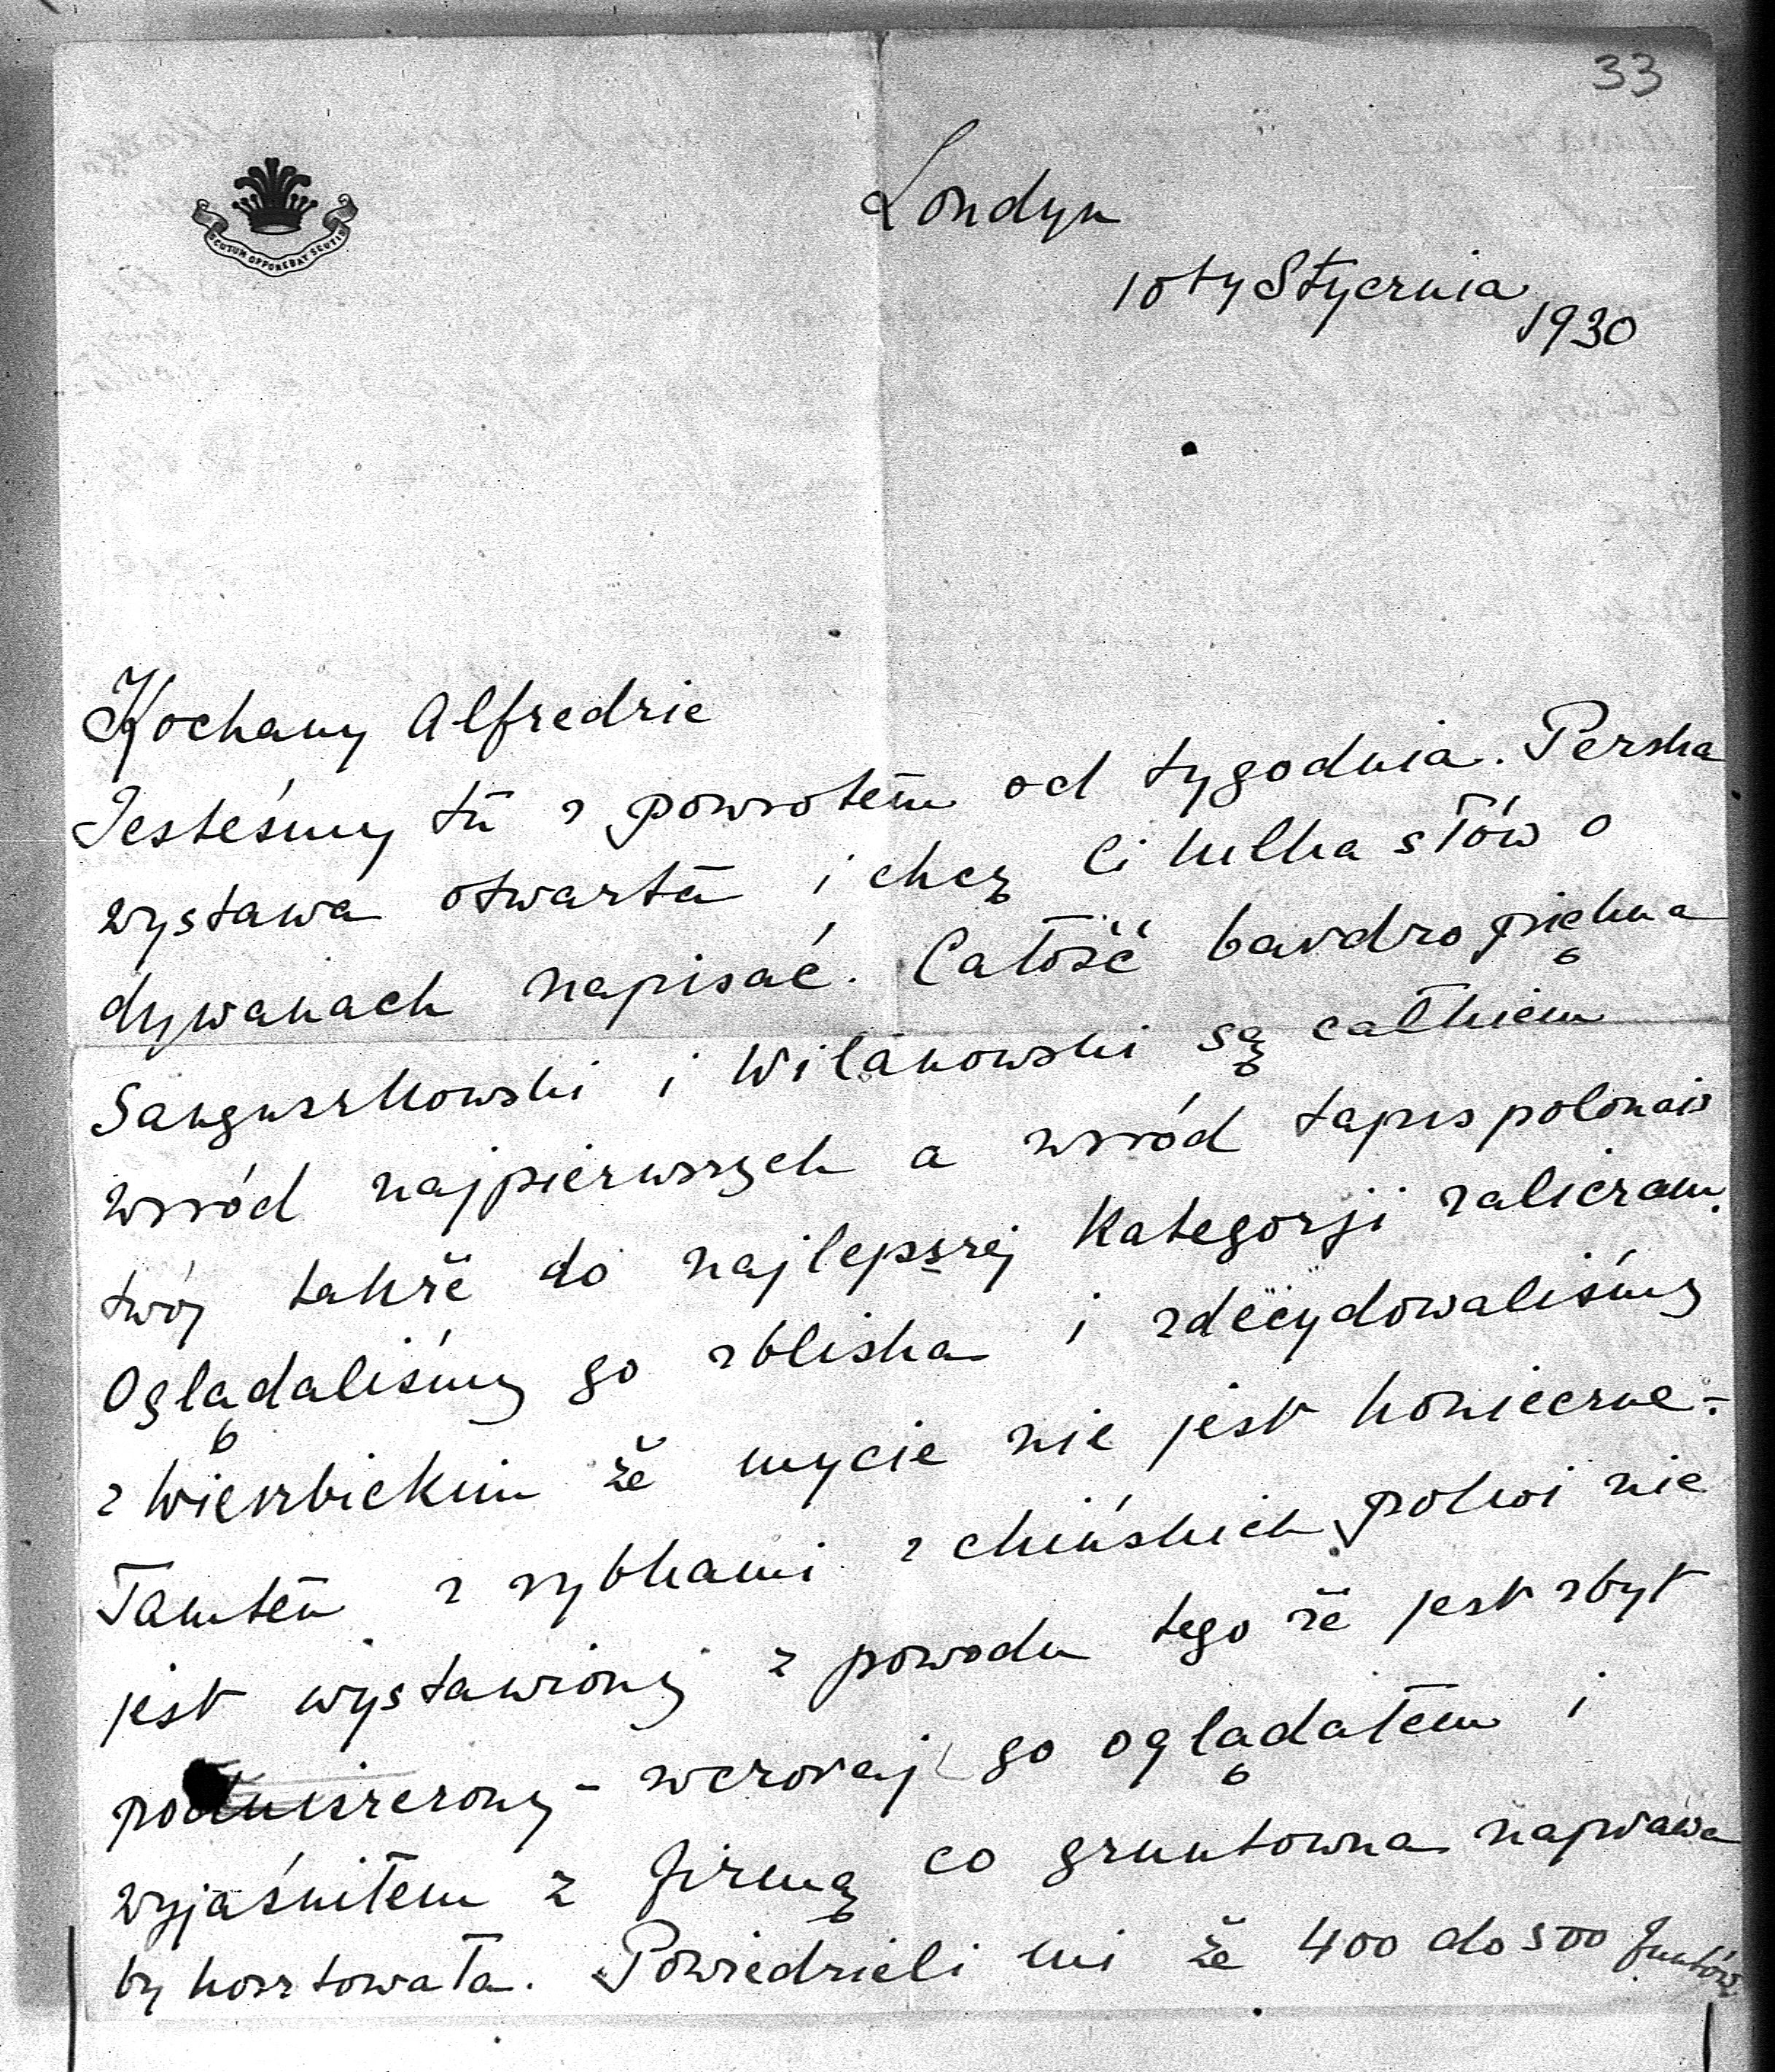 33
SCUTUM OPPONEBAT SCUTIS
Londyn
10ty Stycznia
1930
Kochany Alfredzie
Jesteśmy tu z powrotem od tygodnia. Perska
wystawa otwarta i chcę Ci kilka słów o
dywanach napisać. Całość bardzo piękna
Sanguszkowski i Wilanowski są całkiem
wśród najpierwszych a wśród tapis polonais
twój także do najlepszej kategorji zaliczam.
Oglądaliśmy go zbliska i zdecydowaliśmy
z Wierzbickim że mycie nie jest konieczne -
Tamten z rybkami z chińskich pokoi nie
jest wystawiony z powodu tego że jest zbyt
podniszczony - wczoraj go oglądałem i
wyjaśniłem z firmą co gruntowna naprawa
by kosztowała. Powiedzieli mi że 400 do 500 funtów